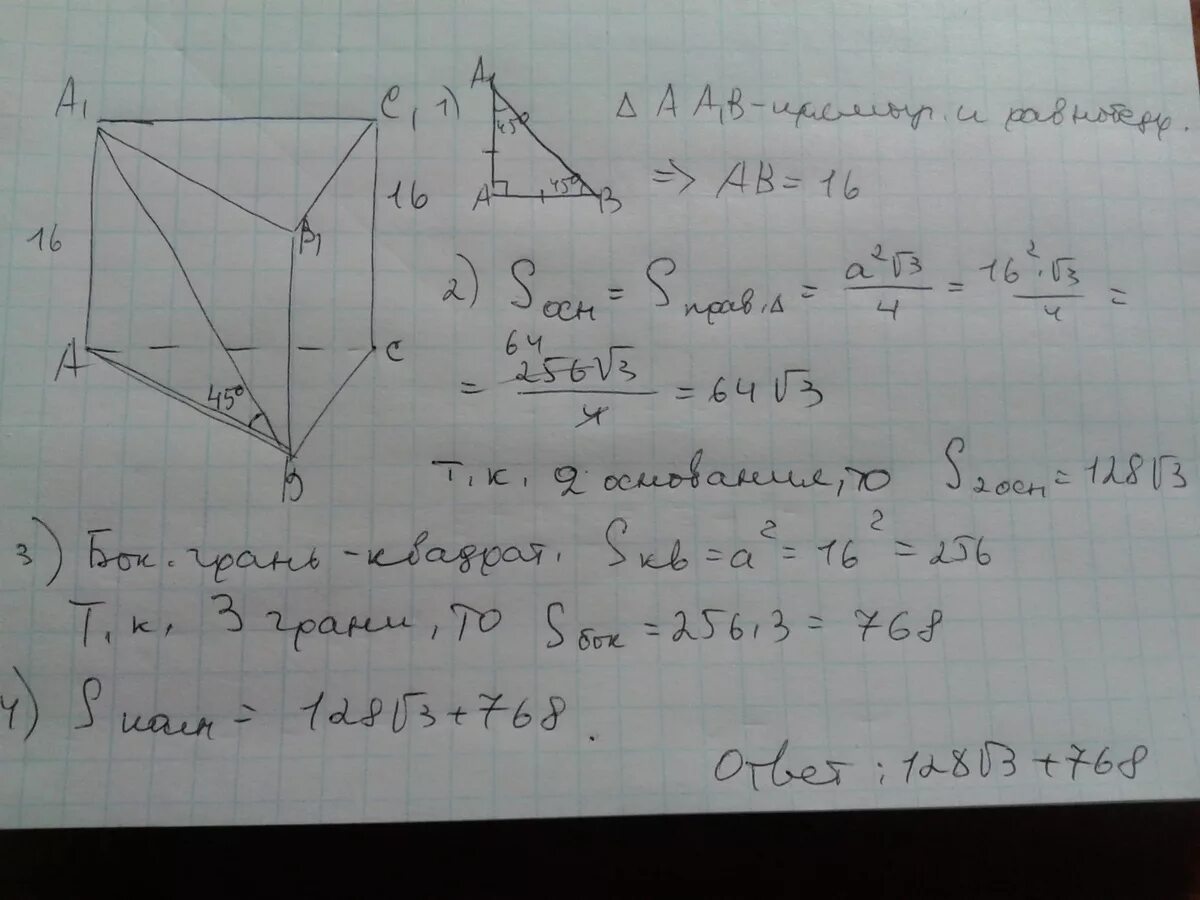 A₁ C₁
16 16
B₁
A C
45°
B
1) A₁
45°
A 45° B
Δ AA₁B - прямоуг. и равнобедр.
=> AB = 16
2) Sосн = Sправ.Δ = a²√3/4 = 16²·√3/4 =
64
= 256√3/4 = 64√3
Т.к. 2 основания, то S2осн = 128√3
3) Бок. грань - квадрат. Sкв = a² = 16² = 256
Т.к. 3 грани, то Sбок = 256·3 = 768
4) Sполн = 128√3 + 768.
Ответ: 128√3 + 768